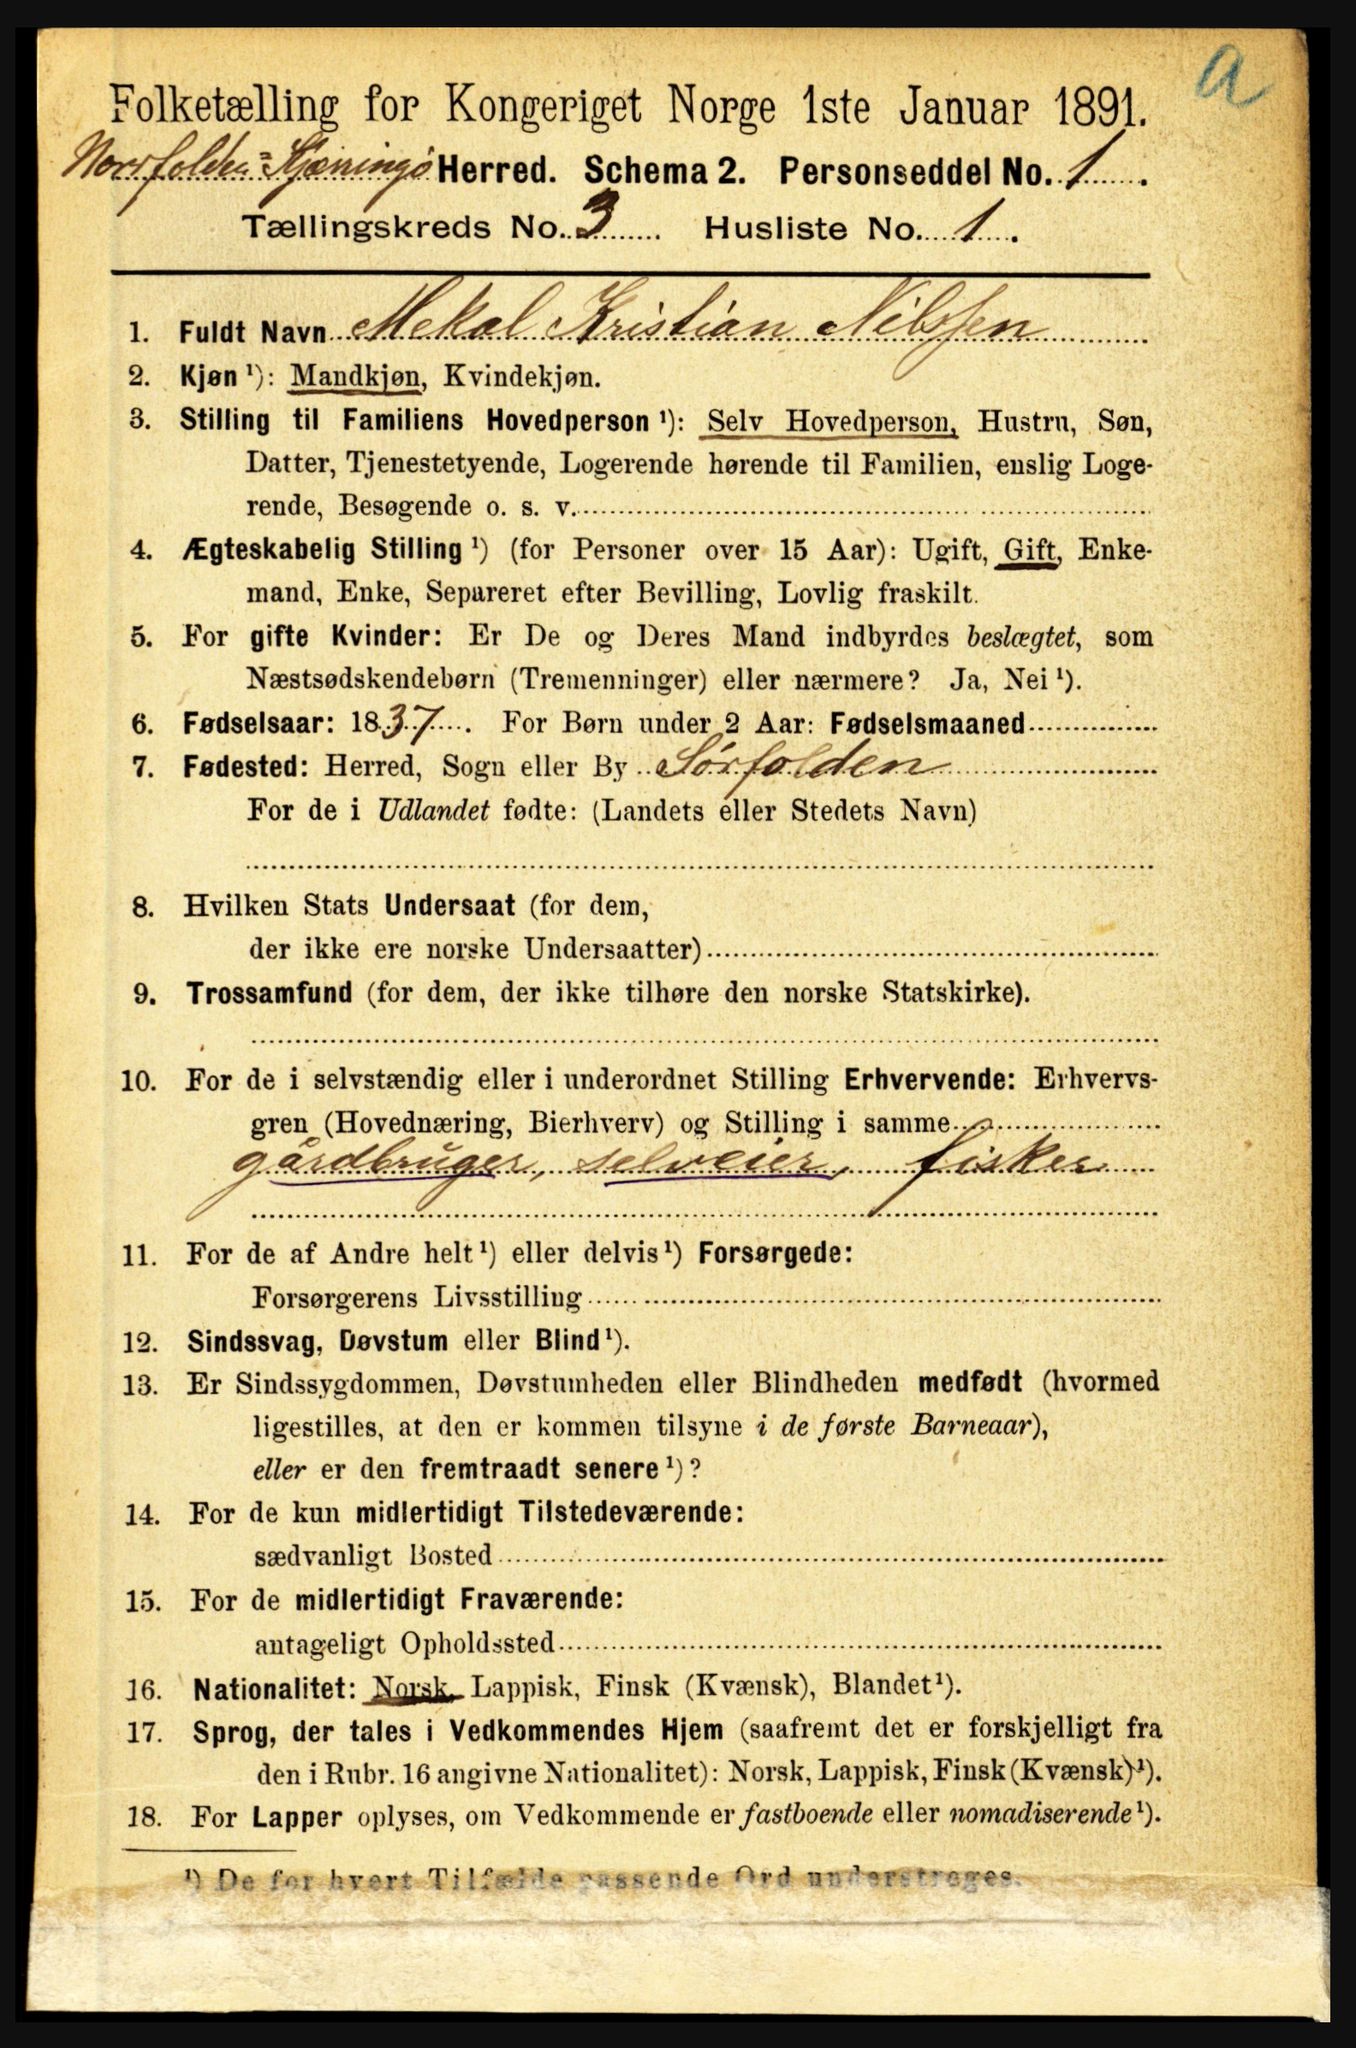 a
Folketælling for Kongeriget Norge 1ste Januar 1891.
Norrfolden=Kjerringø Herred. Schema 2. Personseddel No. 1.
Tællingskreds No. 3 Husliste No. 1.
1. Fuldt Navn Mekal Kristian Nilssen
2. Kjøn¹): Mandkjøn, Kvindekjøn.
3. Stilling til Familiens Hovedperson¹): Selv Hovedperson, Hustru, Søn,
Datter, Tjenestetyende, Logerende hørende til Familien, enslig Loge-
rende, Besøgende o. s. v.
4. Ægteskabelig Stilling¹) (for Personer over 15 Aar): Ugift, Gift, Enke-
mand, Enke, Separeret efter Bevilling, Lovlig fraskilt.
5. For gifte Kvinder: Er De og Deres Mand indbyrdes beslægtet, som
Næstsødskendebørn (Tremenninger) eller nærmere? Ja, Nei¹).
6. Fødselsaar: 1837. For Børn under 2 Aar: Fødselsmaaned
7. Fødested: Herred, Sogn eller By Sørfolden
For de i Udlandet fødte: (Landets eller Stedets Navn)
8. Hvilken Stats Undersaat (for dem,
der ikke ere norske Undersaatter)
9. Trossamfund (for dem, der ikke tilhøre den norske Statskirke).
10. For de i selvstændig eller i underordnet Stilling Erhvervende: Erhvervs-
gren (Hovednæring, Bierhverv) og Stilling i samme
gårdbruger, selveier, fisker
11. For de af Andre helt¹) eller delvis¹) Forsørgede:
Forsørgerens Livsstilling
12. Sindssvag, Døvstum eller Blind¹).
13. Er Sindssygdommen, Døvstumheden eller Blindheden medfødt (hvormed
ligestilles, at den er kommen tilsyne i de første Barneaar),
eller er den fremtraadt senere¹)?
14. For de kun midlertidigt Tilstedeværende:
sædvanligt Bosted
15. For de midlertidigt Fraværende:
antageligt Opholdssted
16. Nationalitet: Norsk, Lappisk, Finsk (Kvænsk), Blandet¹).
17. Sprog, der tales i Vedkommendes Hjem (saafremt det er forskjelligt fra
den i Rubr. 16 angivne Nationalitet): Norsk, Lappisk, Finsk (Kvænsk)¹).
18. For Lapper oplyses, om Vedkommende er fastboende eller nomadiserende¹).
¹) De for hvert Tilfælde passende Ord understreges.